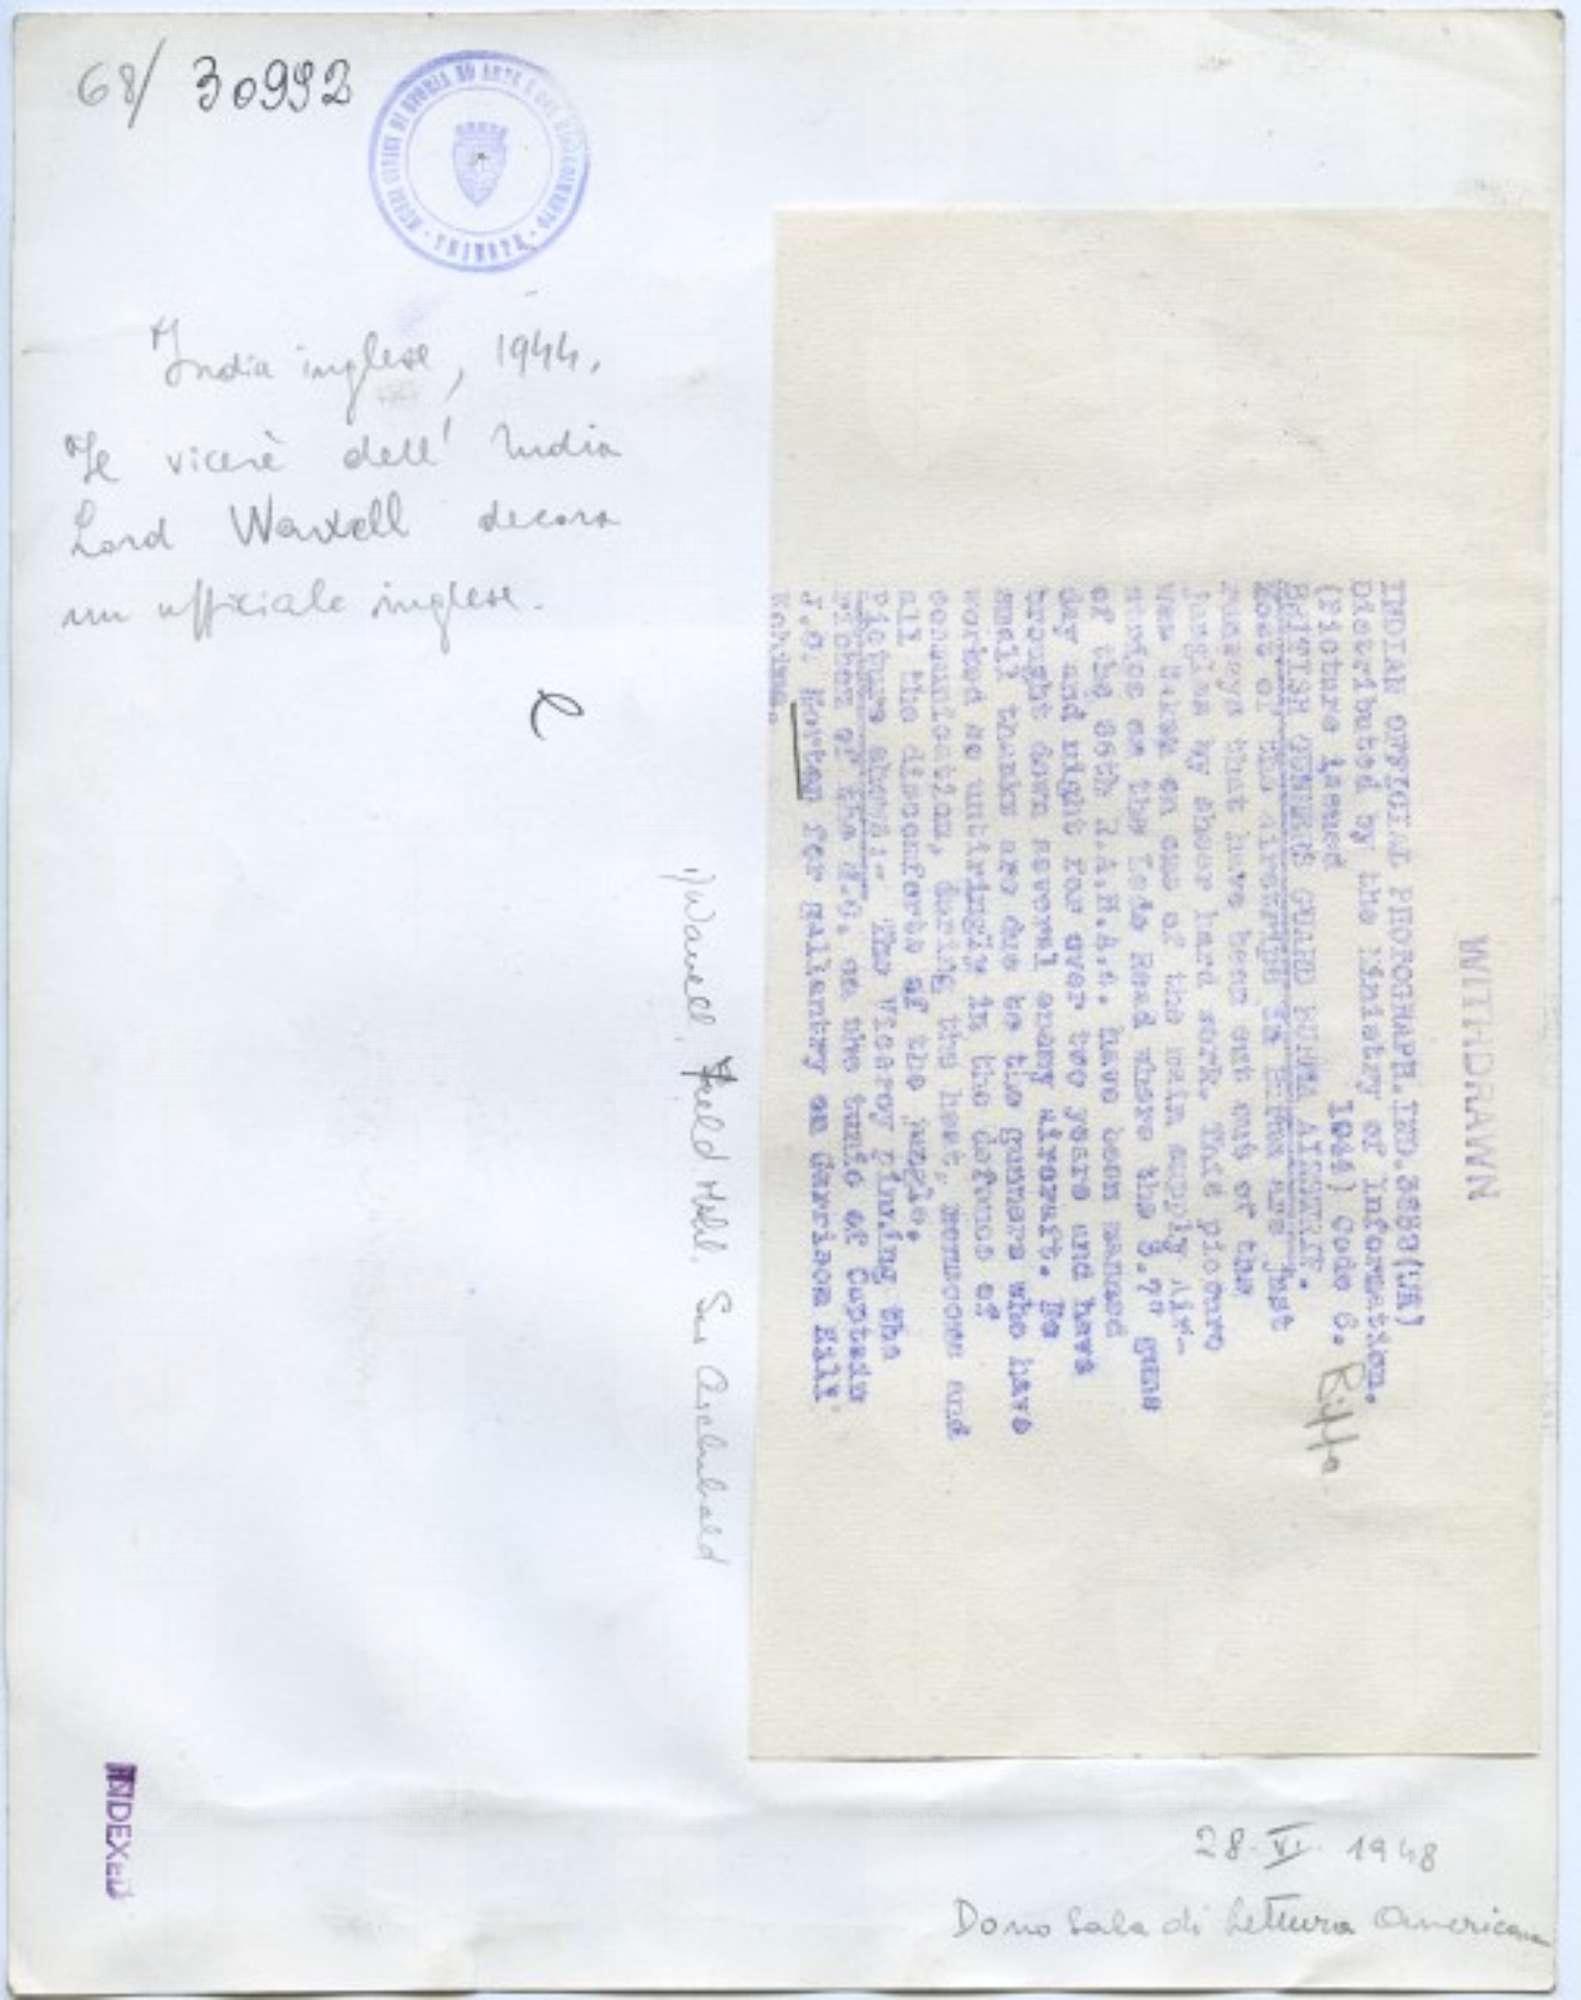 68/ 30992
India inglese, 1944.
Il vicerè dell' India
Lord Wavell decora
un ufficiale inglese.
WITHDRAWN
INDIAN OFFICIAL PHOTOGRAPH. IND.3683(UK)
Distributed by the Ministry of Information.
(Picture issued 1944) Code 6.
BRITISH GUNNERS GUARD BURMA AIRSTRIP.
Most of the airstrips in Burma are just
runways that have been cut out of the
jungle by sheer hard work. This picture
was taken on one of the main supply air-
strips on the Ledo Road where the 3.7" guns
of the 86th H.A.A. have been manned
day and night for over two years and have
brought down several enemy aircraft. No
small thanks are due to the gunners who have
worked so untiringly in the defence of
communication, during the heat, monsoons and
all the discomforts of the jungle.
Picture shows:- The Viceroy pinning the
ribbon of the M.C. on the tunic of Captain
Morton for gallantry on Garrison Hill
Kohima.
Biffa
1) Wavell, Field Mshl. Sir Archibald
INDEXED
28.VI.1948
Dono Sala di Lettura Americana